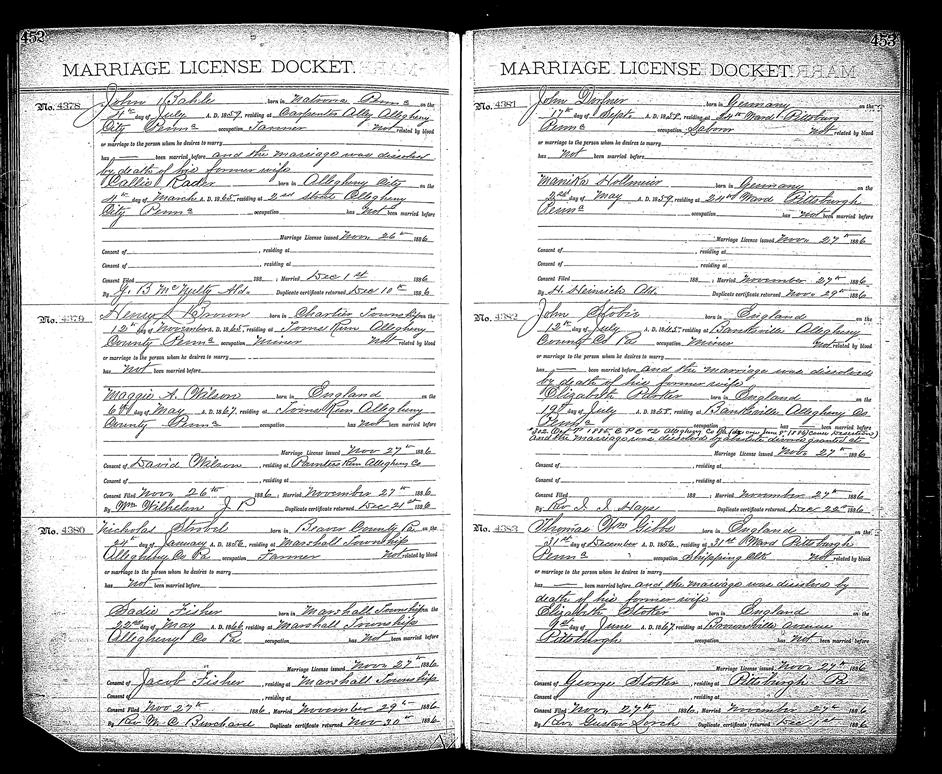 452
MARRIAGE LICENSE DOCKET.
No. 4378
John Sahle born in Natrona Penna on the
4th day of July A. D. 1859, residing at Carpenter Alley Allegheny
City Penna occupation Tanner Not related by blood
or marriage to the person whom he desires to marry
has — been married before and the marriage was dissolved
by death of his former wife
Callie Rader born in Allegheny City on the
4th day of March A. D. 1865, residing at 2nd street Allegheny
City Penna occupation has Not been married before
Marriage License issued Nov. 26th 1886
Consent of , residing at
Consent of , residing at
Consent Filed 188 ; Married Dec 1st 1886
By J. B McNulty Ald. Duplicate certificate returned Dec 10th 1886
No. 4379
Henry Brown born in Chartier Township on the
12th day of November A. D. 1861, residing at Toms Run Allegheny
County Penna occupation Miner Not related by blood
or marriage to the person whom he desires to marry
has Not been married before
Maggie A. Wilson born in England on the
6th day of May A. D. 1867, residing at Toms Run Allegheny
County Penna occupation has Not been married before
Marriage License issued Nov 27th 1886
Consent of David Wilson , residing at Painters Run Allegheny Co
Consent of , residing at
Consent Filed Nov. 26th 1886 ; Married November 27th 1886
By Wm Wilhelm J. P. Duplicate certificate returned Dec 21st 1886
No. 4380
Nicholas born in Beaver County Pa on the
24th day of January A. D. 1856, residing at Marshall Township
Allegheny Co Pa occupation Farmer Not related by blood
or marriage to the person whom he desires to marry
has Not been married before
Sadie Fisher born in Marshall Township on the
22nd day of May A. D. 1866, residing at Marshall Township
Allegheny Co Pa. occupation has Not been married before
Marriage License issued Nov. 27th 1886
Consent of Jacob Fisher , residing at Marshall Township
Consent of , residing at
Consent Filed Nov 27th 1886, Married November 29th 1886
By Rev M. C Duplicate certificate returned Nov 30th 1886
453
MARRIAGE LICENSE DOCKET.
No. 4381
John born in Germany on the
17th day of Sept. A. D. 1858, residing at 24th Ward Pittsburg
Penna occupation Labour Not related by blood
or marriage to the person whom he desires to marry
has Not been married before
born in Germany on the
2nd day of May A. D. 1859, residing at 24th Ward Pittsburgh
Penna occupation has Not been married before
Marriage License issued Nov. 27th 1886
Consent of , residing at
Consent of , residing at
Consent Filed 188 ; Married November 27th 1886
By H. Heinrich Ald. Duplicate certificate returned Nov. 29th 1886
No. 4382
John born in England on the
12th day of July A. D. 1845, residing at Banksville Allegheny
County Co Pa occupation Miner Not related by blood
or marriage to the person whom he desires to marry
has — been married before and the marriage was dissolved
by death of his former wife
Elizabeth born in England on the
19th day of July A. D. 1858, residing at Banksville Allegheny Co
Penna occupation has been married before
and the marriage was dissolved by absolute divorce granted at
Marriage License issued Nov. 27th 1886
Consent of , residing at
Consent of , residing at
Consent Filed 188 ; Married November 27th 1886
By Rev. J. J. Hays Duplicate certificate returned Dec 22nd 1886
No. 4383
Thomas Wm Gibbs born in England on the
31st day of December A. D. 1856, residing at 31st Ward Pittsburgh
Penna occupation Shipping Clk. Not related by blood
or marriage to the person whom he desires to marry
has — been married before and the marriage was dissolved by
death of his former wife
Elizabeth Stoker born in England on the
9th day of June A. D. 1867, residing at Brownsville avenue
Pittsburgh occupation has Not been married before
Marriage License issued Nov. 27th 1886
Consent of George Stoker , residing at Pittsburgh Pa
Consent of , residing at
Consent Filed Nov. 27th 1886, Married November 27th 1886
By Rev. Gustav Lorch Duplicate certificate returned Dec 1st 1886